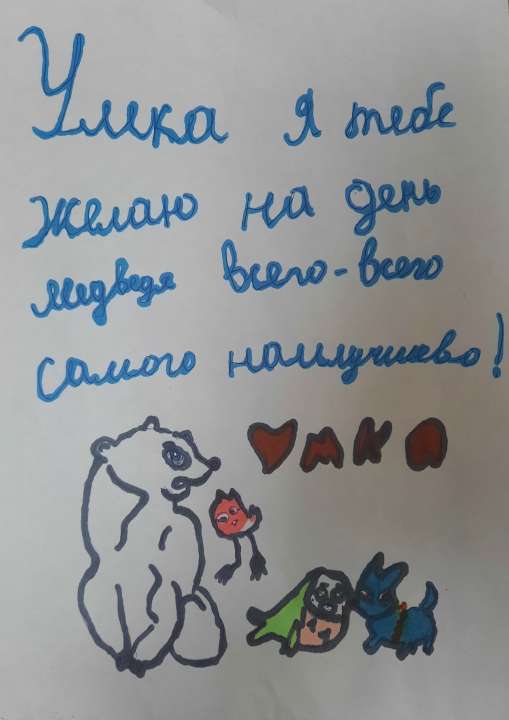 Умка я тебе
желаю на день
медведя всего-всего
самого наилучшево!
♥мка